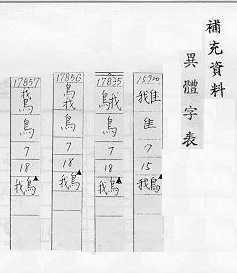 補充資料
異體字表
隹
7
15
鵝
17835
䳘
鳥
7
18
鵝
17836
䳗
鳥
7
18
鵝
17837
鵞
鳥
7
18
鵝